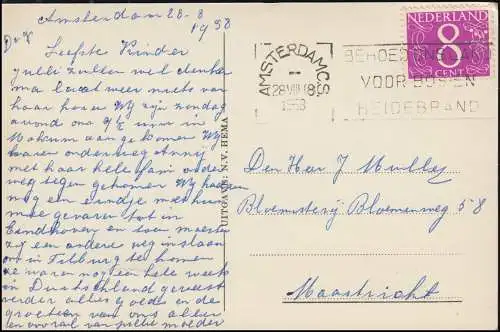 Amsterdam 28-8
1958
Liefste Kinder
jullie zullen wel denken
ma laat weer niets van
haar horen Wy zyn zondag
avond om 9½ uur in
Mokum aangekomen Wy
waren onderweg Annij
met haar hele fam onder
weg tegen gekomen Wy hadden
nog een eindje met hun
mee gevaren tot in
Eindhoven en toen moesten
zy een andere weg inslaan
om in Tilburg te komen
ze waren nog een hele week
in Duitschland geweest
verder alles goeds en de
groeten van ons allen
en vooral van jullie moeder
UITGAVE: N.V. HEMA
AMSTERDAM CS
28 VIII 18
1958
BEHOED ONS LAND
VOOR BOS EN
HEIDEBRAND
NEDERLAND
8
CENT
Den Heer J Mulles
Bloemisterij Bloemenweg 58
Maastricht